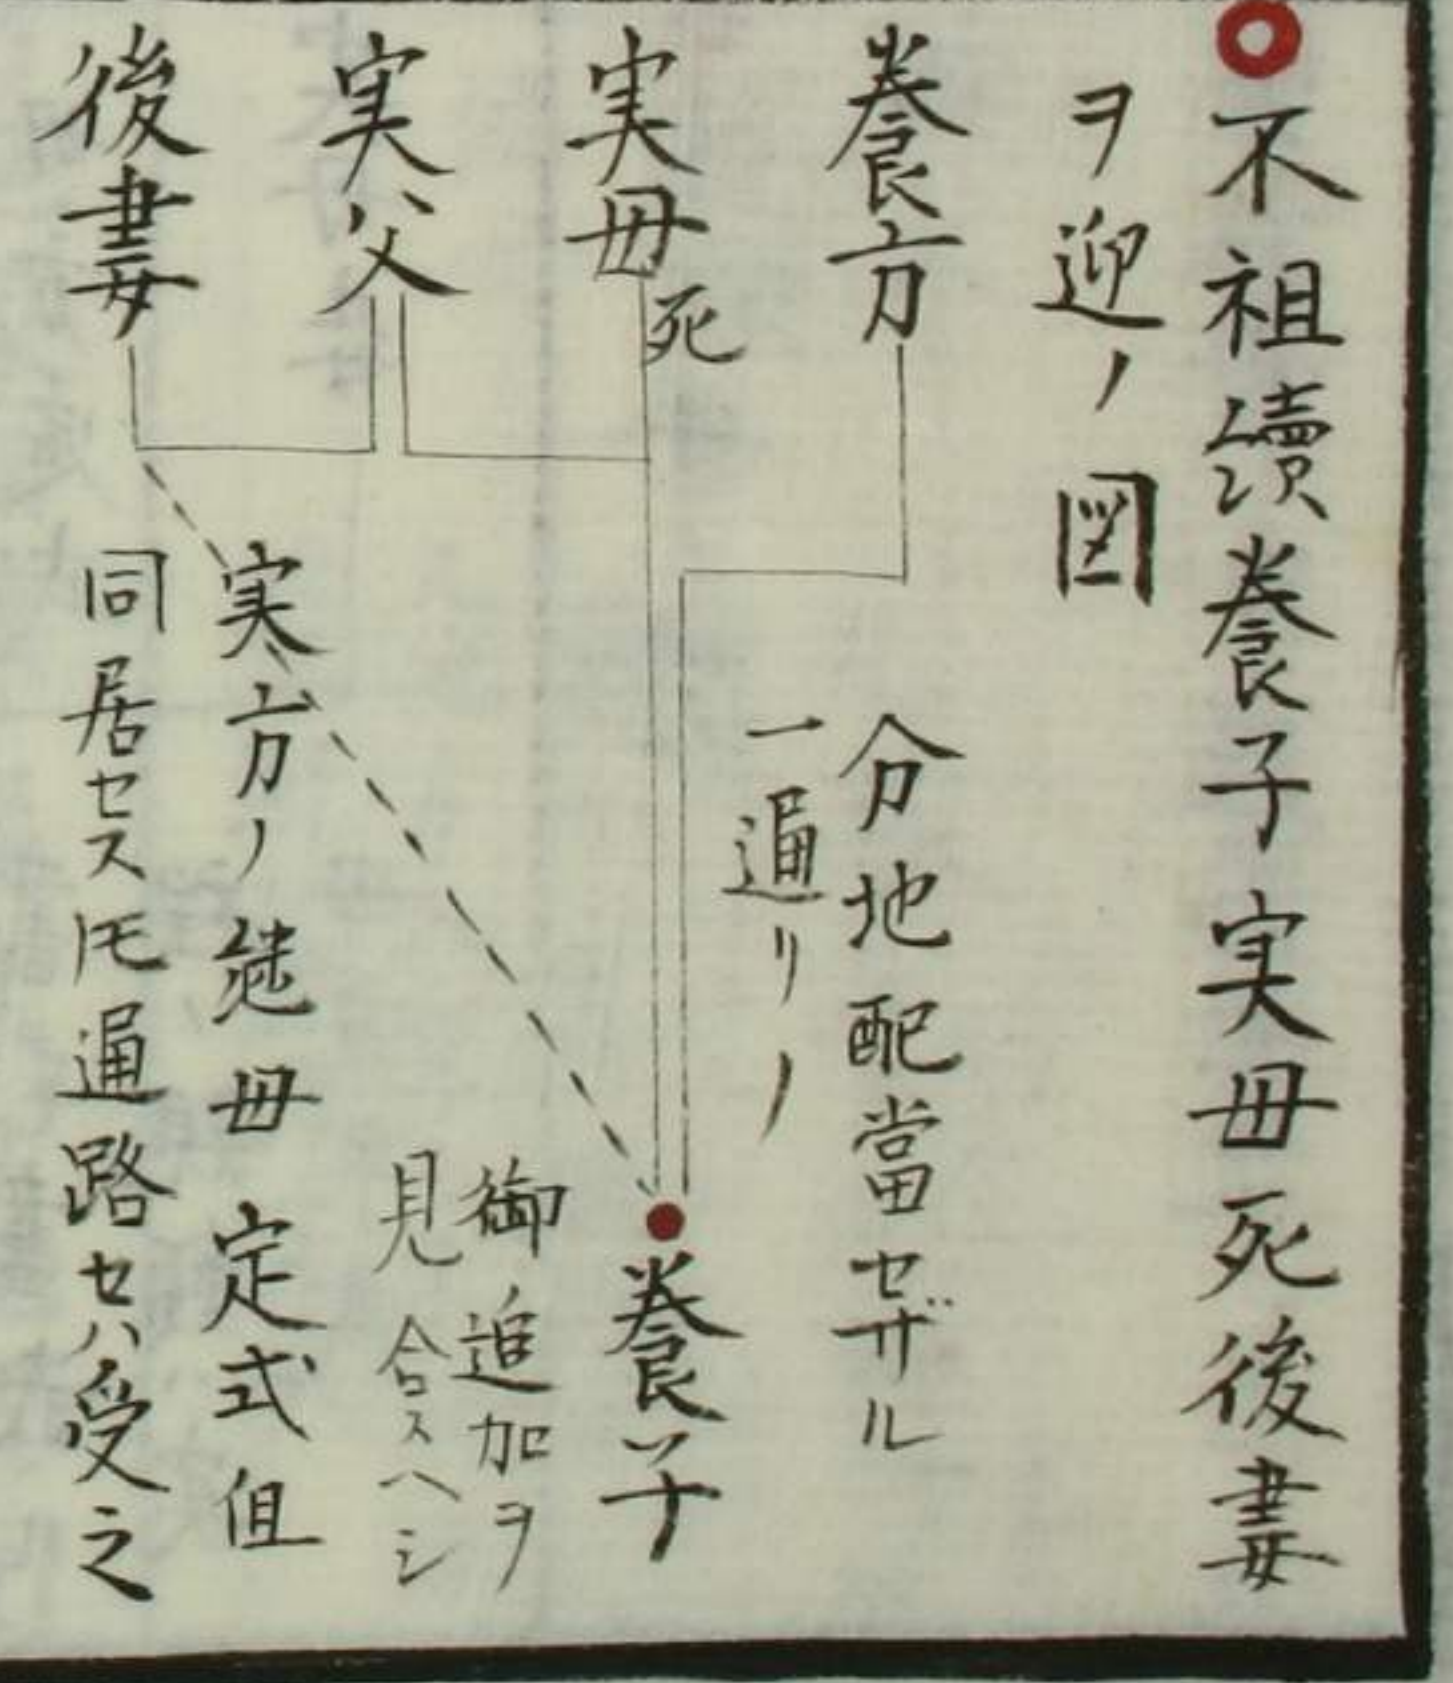 不相續養子実母死後妻
ヲ迎ノ図
養方
実母死
実父
後妻
分地配當セザル
一通リノ
養子
御追加ヲ
見合スヘシ
実方ノ継母定式但
同居セス𪜈通路セハ受之